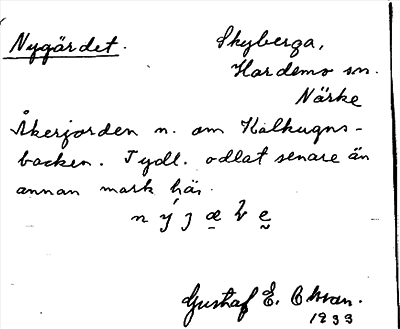 Nygärdet.
Skyberga,
Hardemo sn.
Närke
Åkerjorden n. om Kalkugns-
backen. Tydl. odlat senare än
annan mark här.
Gustaf E.
1933